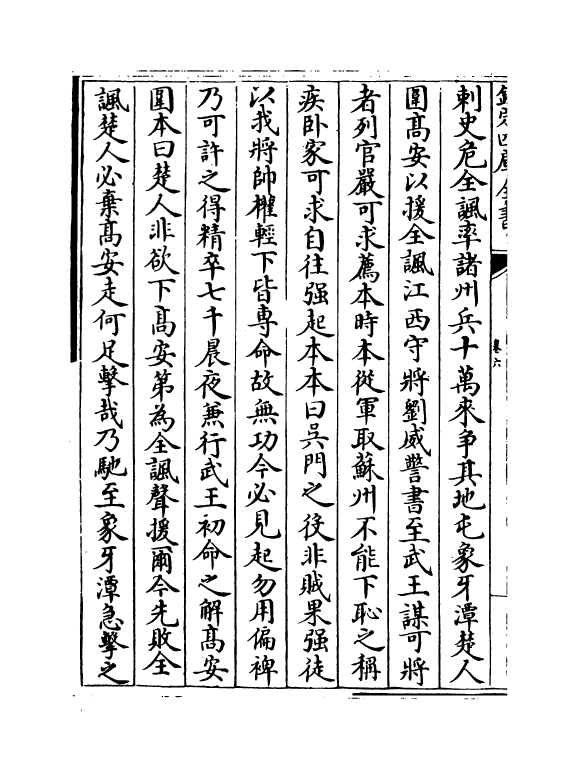 欽定四庫全書
卷六
刺史危全諷率諸州兵十萬來爭其地屯象牙潭楚人
圍髙安以援全諷江西守將劉威警書至武王謀可將
者列官嚴可求薦本時本從軍取蘇州不能下恥之稱
疾卧家可求自往强起本本曰吳門之役非賊果强徒
以我將帥權輕下皆専命故無功今必見起勿用偏裨
乃可許之得精卒七千晨夜兼行武王初命之解髙安
圍本曰楚人非欲下髙安第為全諷聲援爾今先敗全
諷楚人必棄髙安走何足擊哉乃馳至象牙潭急擊之